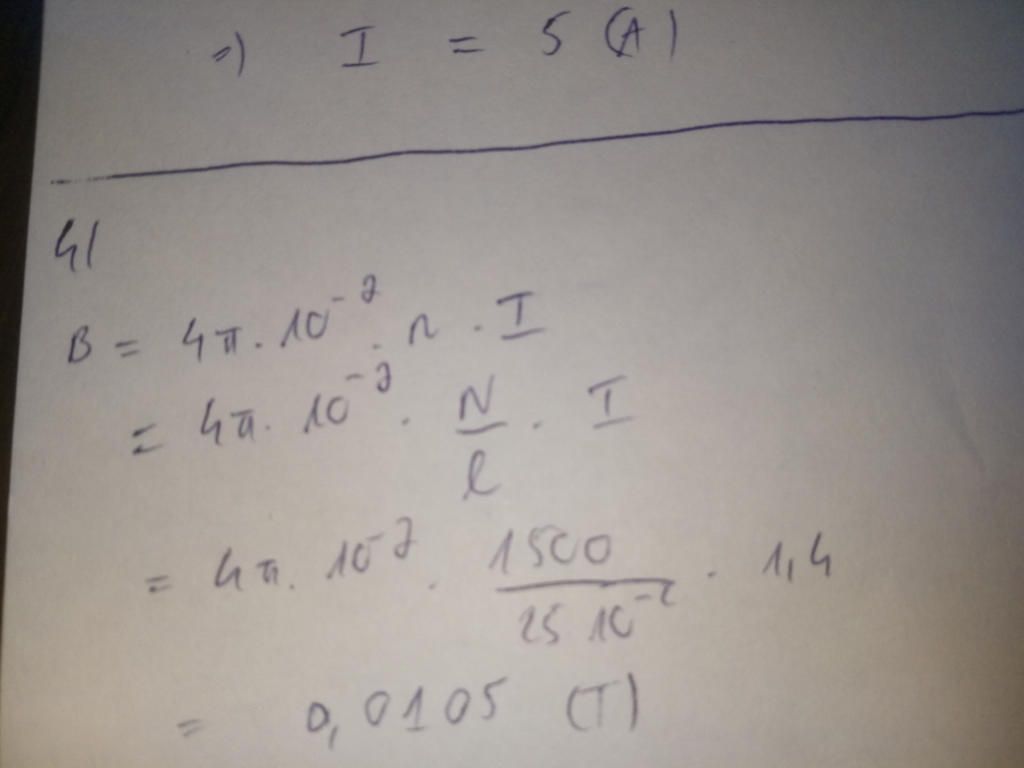 =) I = 5 (A)
4/
B = 4π. 10^-7 . n . I
= 4π. 10^-7 . N/l . I
= 4π. 10^-7 . 1500/25 10^-2 . 1,4
= 0,0105 (T)